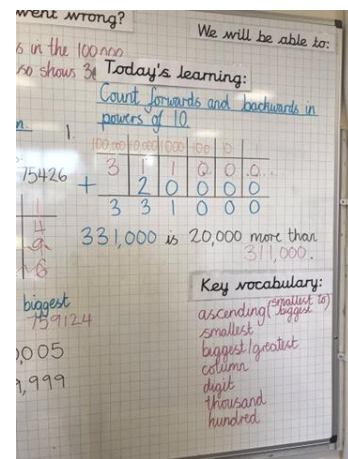 went wrong?
We will be able to:
s in the 100,000
so shows 3
Today's learning:
Count forwards and backwards in
powers of 10.
1.
100,000 10,000 1000 100 10 1
75426
3 1 1 0 0 0
+ 2 0 0 0 0
3 3 1 0 0 0
1
4
9
6
331,000 is 20,000 more than
311,000.
Key vocabulary:
ascending (smallest to biggest)
smallest
biggest/greatest
column
digit
thousand
hundred
biggest
759124
,005
,999